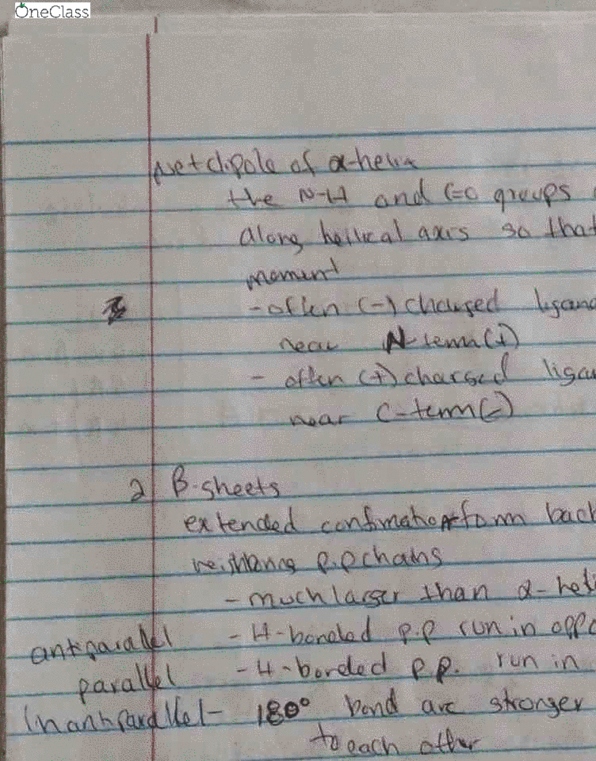 OneClass
Net dipole of α-helix
the N-H and C=O groups
along helical axis so that
moment
-often (-) charged ligand
near N-term(+)
- often (+) charged liga
near C-term(-)
2 β-sheets
extended confimation form back
p.p chains
-much larger than α-heli
antiparallel -H-bonded p.p run in oppo
parallel -H-bonded p.p. run in
In antiparallel- 180° bond are stronger
to each other